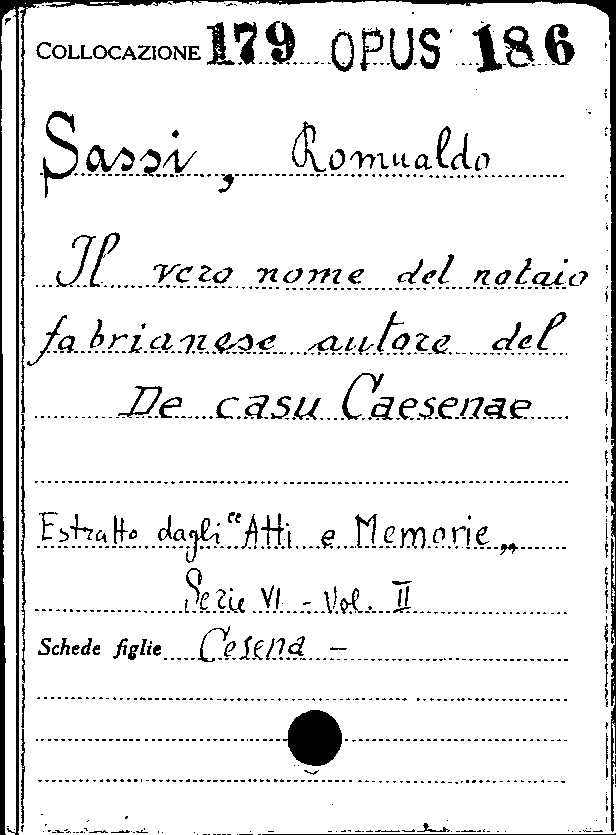 COLLOCAZIONE 179 OPUS 186
Sassi, Romualdo
Il vero nome del notaio
fabrianese autore del
De casu Caesenae
Estratto dagli "Atti e Memorie„
Serie VI - Vol. II
Schede figlie Cesena -